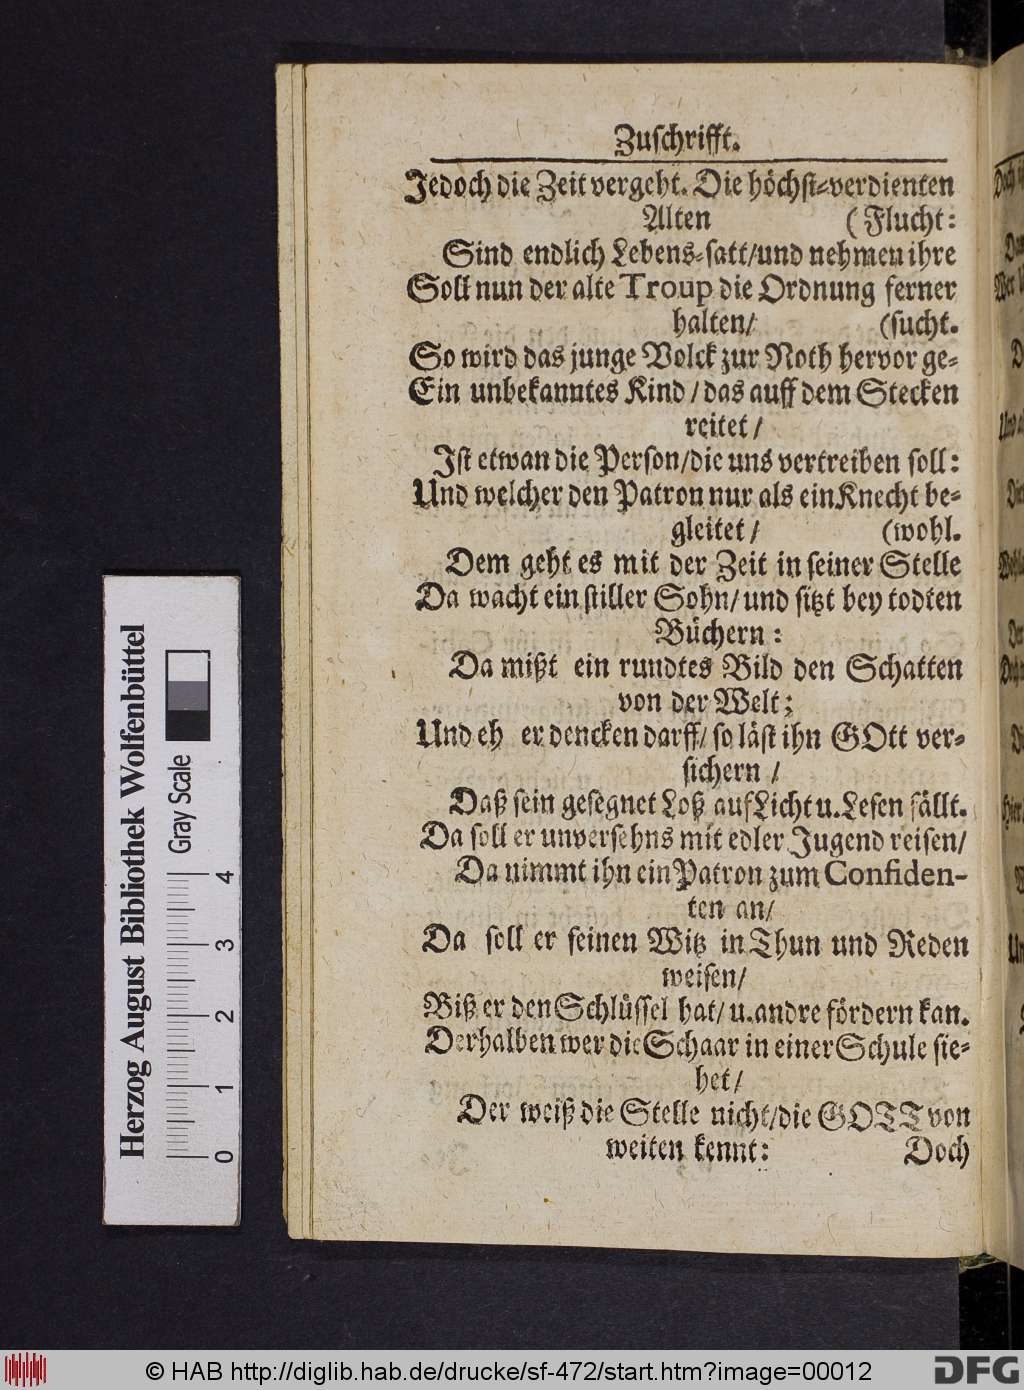 Zuschrifft.
Jedoch die Zeit vergeht. Die höchst-verdienten
Alten (Flucht:
Sind endlich Lebens-satt/und nehmen ihre
Soll nun der alte Troup die Ordnung ferner
halten/ (sucht.
So wird das junge Volck zur Noth hervor ge-
Ein unbekanntes Kind/das auff dem Stecken
reitet/
Ist etwan die Person/die uns vertreiben soll:
Und welcher den Patron nur als ein Knecht be-
gleitet/ (wohl.
Dem geht es mit der Zeit in seiner Stelle
Da wacht ein stiller Sohn/und sitzt bey todten
Büchern:
Da mißt ein rundtes Bild den Schatten
von der Welt;
Und eh er dencken darff/so läst ihn GOtt ver-
sichern/
Daß sein gesegnet Loß auf Licht u. Lesen fällt.
Da soll er unversehns mit edler Jugend reisen/
Da nimmt ihn ein Patron zum Confiden-
ten an/
Da soll er seinen Witz in Thun und Reden
weisen/
Biß er den Schlüssel hat/u. andre fördern kan.
Derhalben wer die Schaar in einer Schule sie-
het/
Der weiß die Stelle nicht/die GOTT von
weiten kennt: Doch
Herzog August Bibliothek Wolfenbüttel
Gray Scale
0 1 2 3 4
© HAB http://diglib.hab.de/drucke/sf-472/start.htm?image=00012
DFG